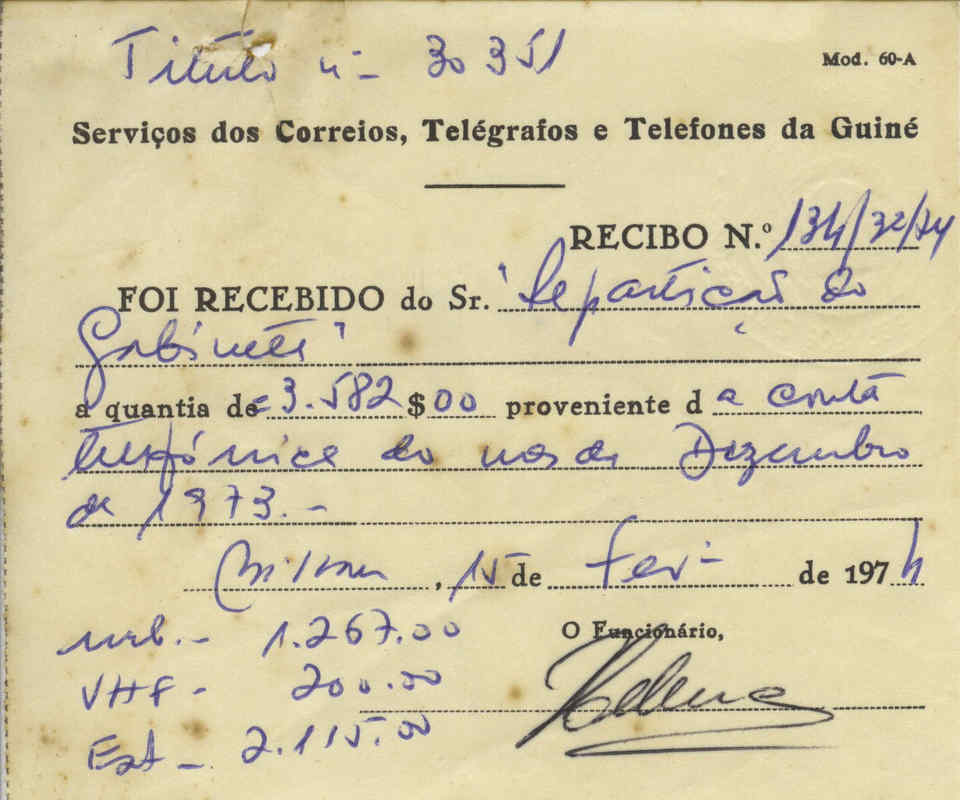 Título nº 30351
Mod. 60-A
Serviços dos Correios, Telégrafos e Telefones da Guiné
RECIBO N.º 134/32/74
FOI RECEBIDO do Sr. "Repartição do
Gabinete"
a quantia de =3.582$00 proveniente d a conta
telefónica do mês de Dezembro
de 1973.-
Bissau, 15 de Fevº de 1974
O Funcionário,
urb.- 1.267.00
VHF - 200.00
Ext - 2.115.00